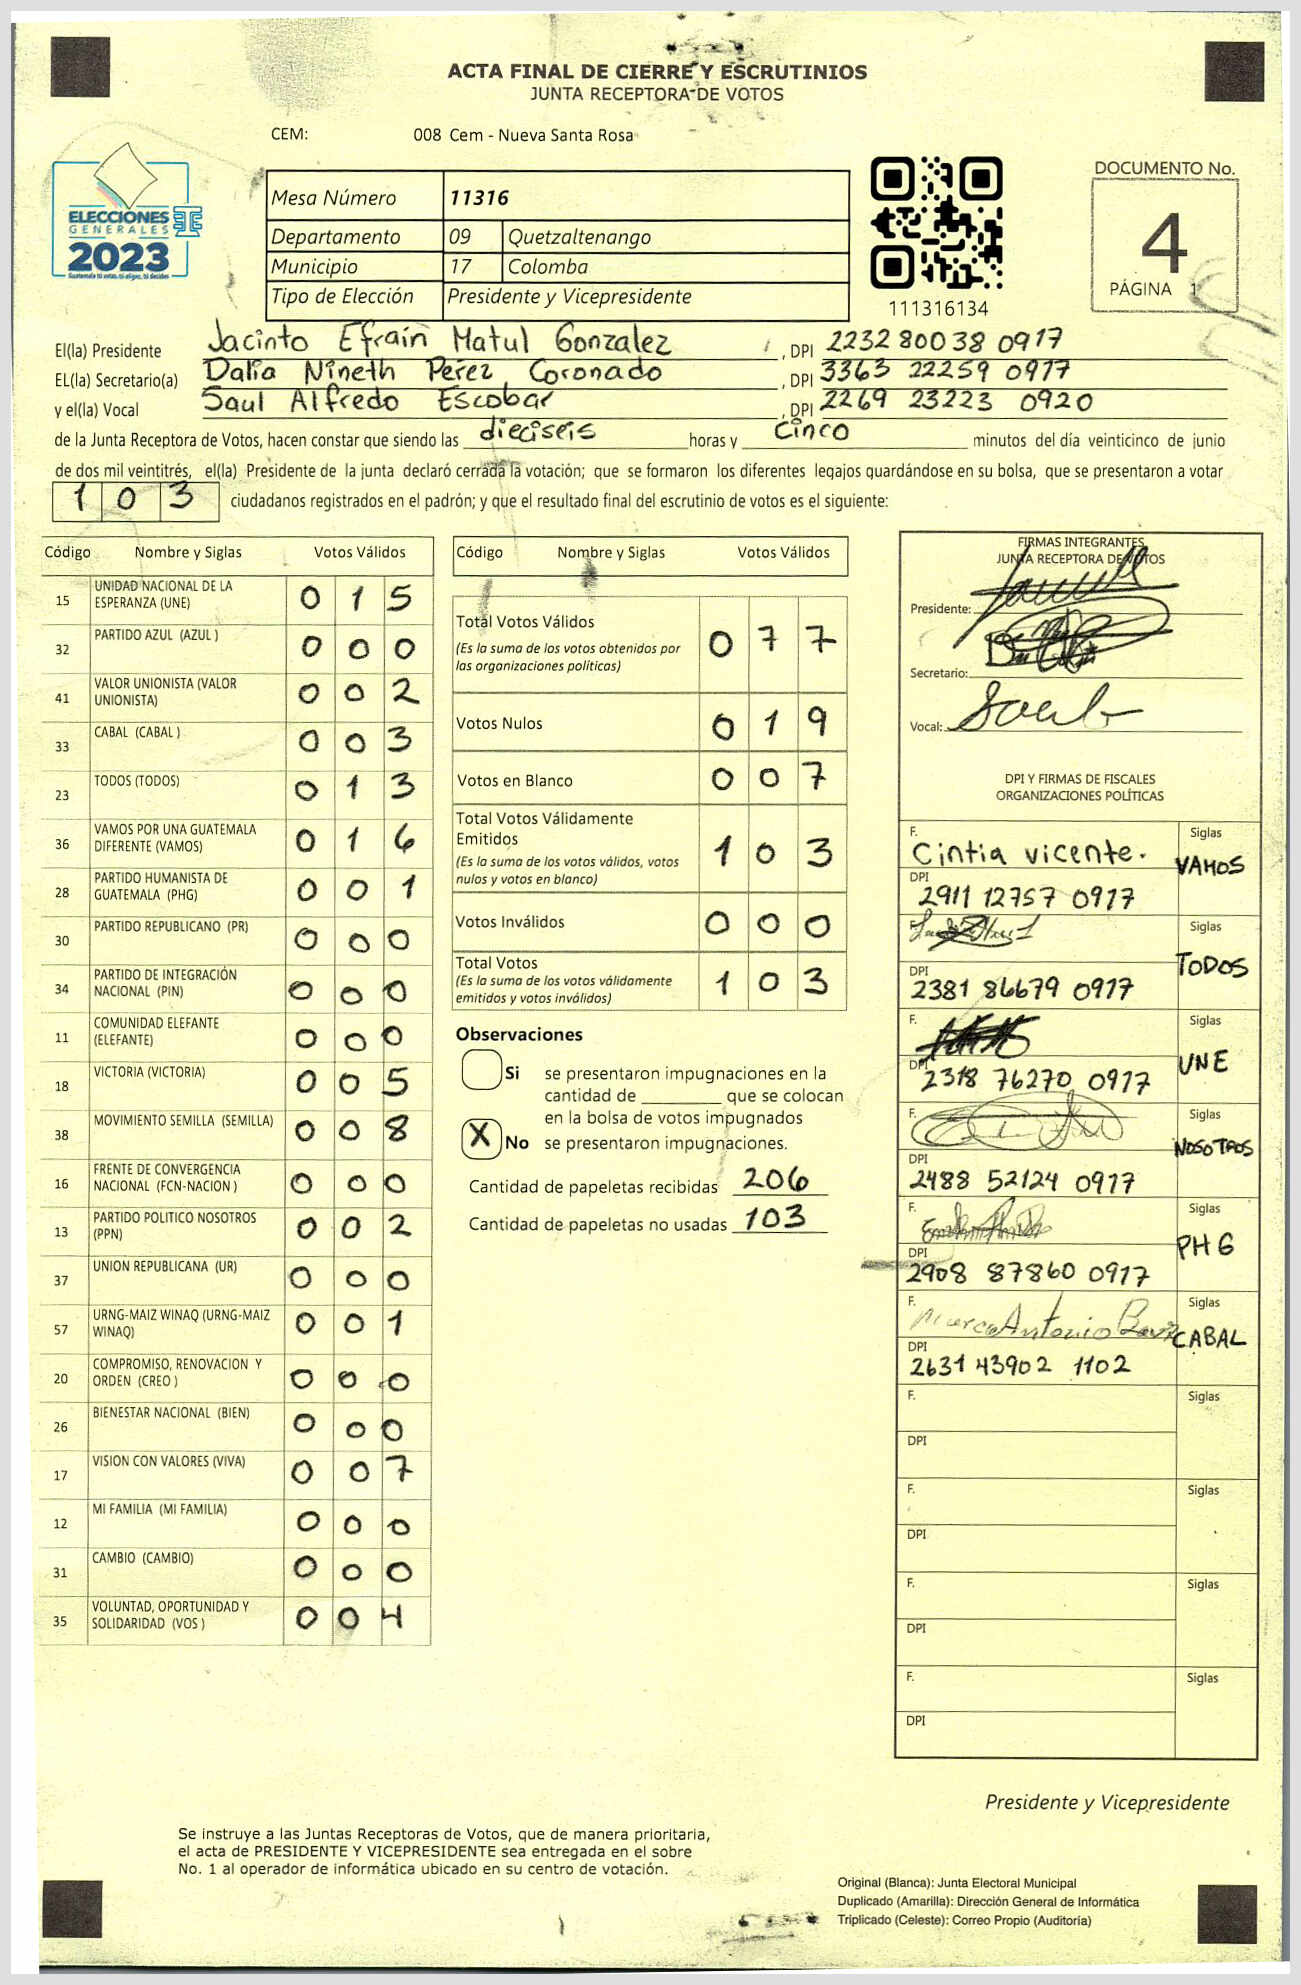 ACTA FINAL DE CIERRE Y ESCRUTINIOS
JUNTA RECEPTORA DE VOTOS
CEM: 008 Cem - Nueva Santa Rosa
ELECCIONES
GENERALES
2023
Mesa Número 11316
Departamento 09 Quetzaltenango
Municipio 17 Colomba
Tipo de Elección Presidente y Vicepresidente
111316134
DOCUMENTO No.
4
PÁGINA 1
El(la) Presidente Jacinto Efraín Matul Gonzalez, DPI 2232 80038 0917
EL(la) Secretario(a) Dalia Nineth Pérez Coronado, DPI 3363 22259 0917
y el(la) Vocal Saul Alfredo Escobar, DPI 2269 23223 0920
de la Junta Receptora de Votos, hacen constar que siendo las dieciseis horas y cinco minutos del día veinticinco de junio
de dos mil veintitrés, el(la) Presidente de la junta declaró cerrada la votación; que se formaron los diferentes legajos quardándose en su bolsa, que se presentaron a votar
103 ciudadanos registrados en el padrón; y que el resultado final del escrutinio de votos es el siguiente:
Código Nombre y Siglas Votos Válidos
15 UNIDAD NACIONAL DE LA ESPERANZA (UNE) 015
32 PARTIDO AZUL (AZUL ) 000
41 VALOR UNIONISTA (VALOR UNIONISTA) 002
33 CABAL (CABAL ) 003
23 TODOS (TODOS) 013
36 VAMOS POR UNA GUATEMALA DIFERENTE (VAMOS) 016
28 PARTIDO HUMANISTA DE GUATEMALA (PHG) 001
30 PARTIDO REPUBLICANO (PR) 000
34 PARTIDO DE INTEGRACIÓN NACIONAL (PIN) 000
11 COMUNIDAD ELEFANTE (ELEFANTE) 000
18 VICTORIA (VICTORIA) 005
38 MOVIMIENTO SEMILLA (SEMILLA) 008
16 FRENTE DE CONVERGENCIA NACIONAL (FCN-NACION ) 000
13 PARTIDO POLITICO NOSOTROS (PPN) 002
37 UNION REPUBLICANA (UR) 000
57 URNG-MAIZ WINAQ (URNG-MAIZ WINAQ) 001
20 COMPROMISO, RENOVACION Y ORDEN (CREO ) 000
26 BIENESTAR NACIONAL (BIEN) 000
17 VISION CON VALORES (VIVA) 007
12 MI FAMILIA (MI FAMILIA) 000
31 CAMBIO (CAMBIO) 000
35 VOLUNTAD, OPORTUNIDAD Y SOLIDARIDAD (VOS ) 004
Código Nombre y Siglas Votos Válidos
Total Votos Válidos 077
(Es la suma de los votos obtenidos por
las organizaciones políticas)
Votos Nulos 019
Votos en Blanco 007
Total Votos Válidamente
Emitidos 103
(Es la suma de los votos válidos, votos
nulos y votos en blanco)
Votos Inválidos 000
Total Votos 103
(Es la suma de los votos válidamente
emitidos y votos inválidos)
Observaciones
Si se presentaron impugnaciones en la
cantidad de ________ que se colocan
en la bolsa de votos impugnados
X No se presentaron impugnaciones.
Cantidad de papeletas recibidas 206
Cantidad de papeletas no usadas 103
FIRMAS INTEGRANTES
JUNTA RECEPTORA DE VOTOS
Presidente:
Secretario:
Vocal:
DPI Y FIRMAS DE FISCALES
ORGANIZACIONES POLÍTICAS
F. Cintia vicente. Siglas VAMOS
DPI 2911 12757 0917
F. Siglas TODOS
DPI 2381 86679 0917
F. Siglas UNE
DPI 2318 76270 0917
F. Siglas NOSOTROS
DPI 2488 52124 0917
F. Siglas PHG
DPI 2908 87860 0917
F. Marco Antonio Siglas CABAL
DPI 2631 43902 1102
F. Siglas
DPI
F. Siglas
DPI
F. Siglas
DPI
F. Siglas
DPI
Presidente y Vicepresidente
Se instruye a las Juntas Receptoras de Votos, que de manera prioritaria,
el acta de PRESIDENTE Y VICEPRESIDENTE sea entregada en el sobre
No. 1 al operador de informática ubicado en su centro de votación.
Original (Blanca): Junta Electoral Municipal
Duplicado (Amarilla): Dirección General de Informática
Triplicado (Celeste): Correo Propio (Auditoría)